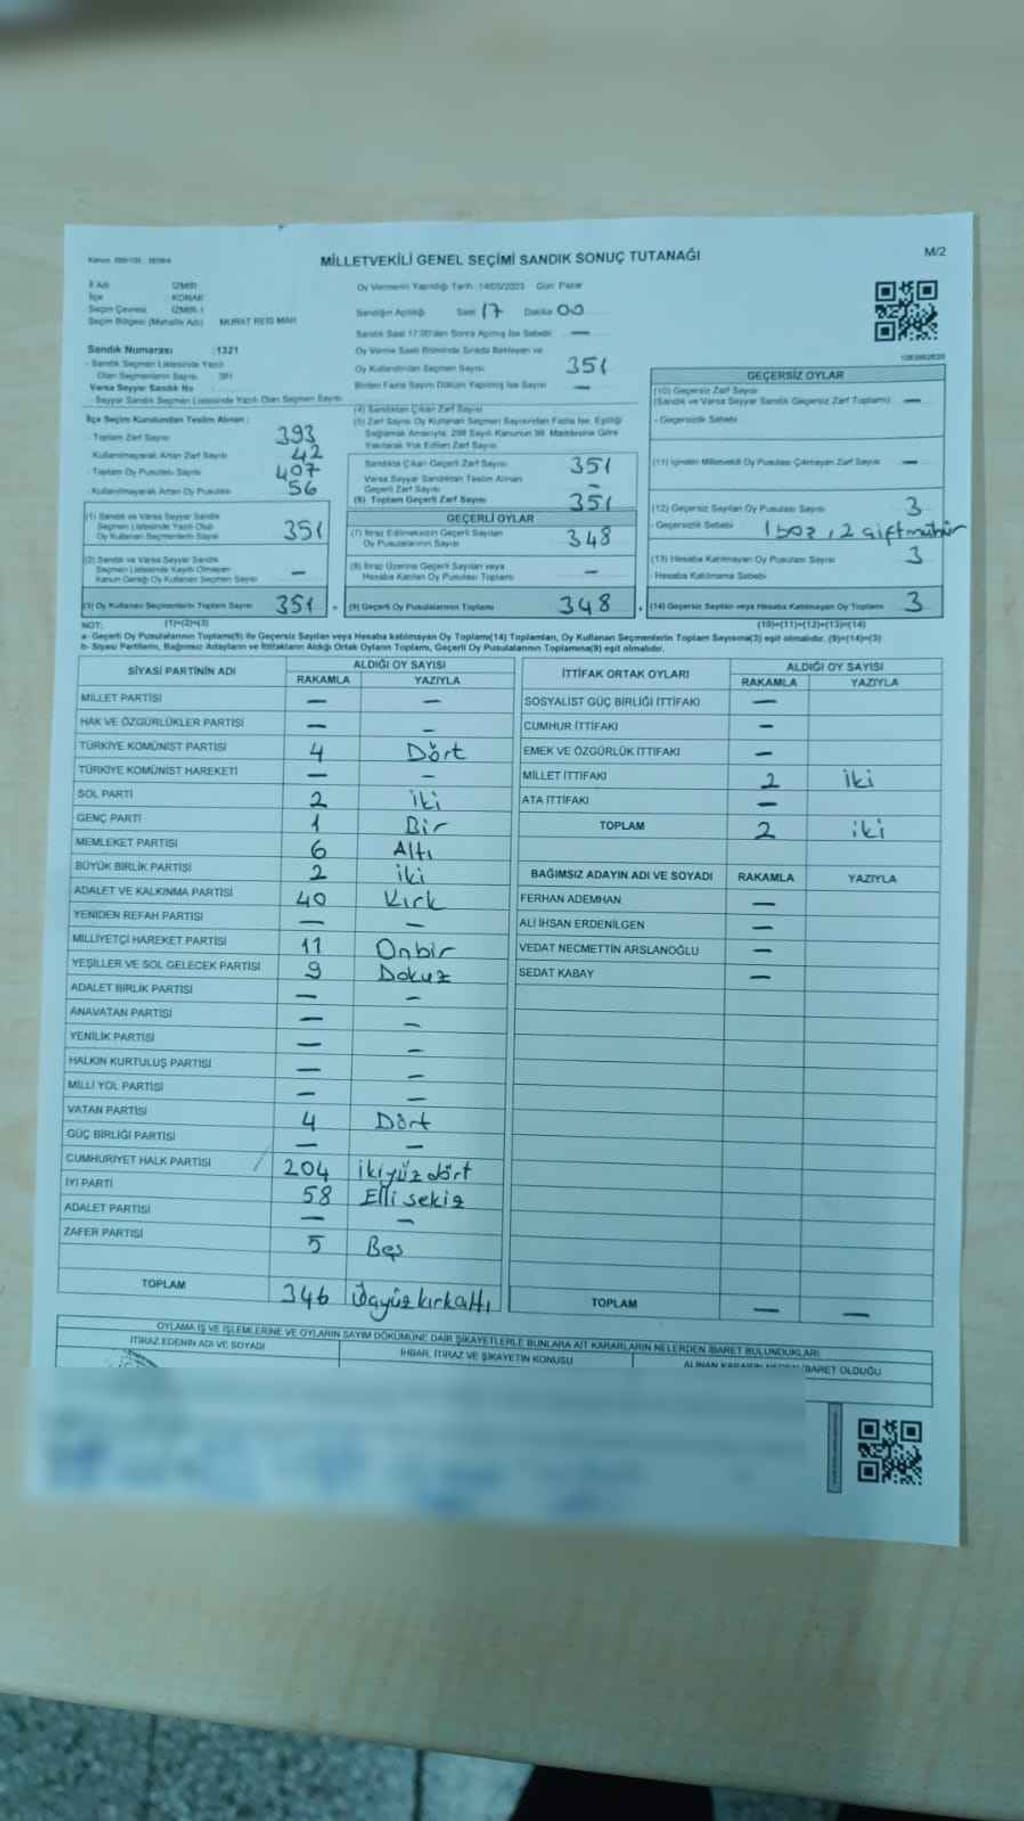 MİLLETVEKİLİ GENEL SEÇİMİ SANDIK SONUÇ TUTANAĞI
M/2
İl Adı İZMİR
İlçe KONAK
Seçim Çevresi İZMİR-1
Seçim Bölgesi (Mahalle Adı) MURAT REİS MAH
Sandık Numarası : 1321
- Sandık Seçmen Listesinde Yazılı
Olan Seçmenlerin Sayısı
Varsa Seyyar Sandık No
- Seyyar Sandık Seçmen Listesinde Yazılı Olan Seçmen Sayısı
İlçe Seçim Kurulundan Teslim Alınan :
- Toplam Zarf Sayısı 393
Kullanılmayarak Artan Zarf Sayısı 42
- Toplam Oy Pusulası Sayısı 407
- Kullanılmayarak Artan Oy Pusulası 56
(1) Sandık ve Varsa Seyyar Sandık
Seçmen Listesinde Yazılı Olup
Oy Kullanan Seçmenlerin Sayısı 351
(2) Sandık ve Varsa Seyyar Sandık
Seçmen Listesinde Kayıtlı Olmayan
Kanun Gereği Oy Kullanan Seçmen Sayısı —
(3) Oy Kullanan Seçmenlerin Toplam Sayısı 351
Oy Vermenin Yapıldığı Tarih : 14/05/2023 Gün: Pazar
Sandığın Açıldığı Saat 17 Dakika 00
Sandık Saat 17:00'den Sonra Açılmış İse Sebebi —
Oy Verme Saati Bitiminde Sırada Bekleyen ve
Oy Kullandırılan Seçmen Sayısı
351
Birden Fazla Sayım Döküm Yapılmış İse Sayısı —
(4) Sandıktan Çıkan Zarf Sayısı
(5) Zarf Sayısı Oy Kullanan Seçmen Sayısından Fazla İse, Eşitliği
Sağlamak Amacıyla, 298 Sayılı Kanunun 98. Maddesine Göre
Yakılarak Yok Edilen Zarf Sayısı
Sandıkta Çıkan Geçerli Zarf Sayısı 351
Varsa Seyyar Sandıktan Teslim Alınan
Geçerli Zarf Sayısı —
(6) Toplam Geçerli Zarf Sayısı 351
GEÇERLİ OYLAR
(7) İtiraz Edilmeksizin Geçerli Sayılan
Oy Pusulalarının Sayısı 348
(8) İtiraz Üzerine Geçerli Sayılan veya
Hesaba Katılan Oy Pusulası Toplamı —
(9) Geçerli Oy Pusulalarının Toplamı 348
GEÇERSİZ OYLAR
(10) Geçersiz Zarf Sayısı
(Sandık ve Varsa Seyyar Sandık Geçersiz Zarf Toplamı) —
- Geçersizlik Sebebi
(11) İçinden Milletvekili Oy Pusulası Çıkmayan Zarf Sayısı —
(12) Geçersiz Sayılan Oy Pusulası Sayısı 3
- Geçersizlik Sebebi 1 boz, 2 çift mühür
(13) Hesaba Katılmayan Oy Pusulası Sayısı 3
- Hesaba Katılmama Sebebi
(14) Geçersiz Sayılan veya Hesaba Katılmayan Oy Toplamı 3
NOT: (1)+(2)=(3)
(10)+(11)+(12)+(13)=(14)
a- Geçerli Oy Pusulalarının Toplamı(9) ile Geçersiz Sayılan veya Hesaba katılmayan Oy Toplamı(14) Toplamları, Oy Kullanan Seçmenlerin Toplam Sayısına(3) eşit olmalıdır. (9)+(14)=(3)
b- Siyasi Partilerin, Bağımsız Adayların ve İttifakların Aldığı Ortak Oyların Toplamı, Geçerli Oy Pusulalarının Toplamına(9) eşit olmalıdır.
SİYASİ PARTİNİN ADI ALDIĞI OY SAYISI
RAKAMLA YAZIYLA
MİLLET PARTİSİ — —
HAK VE ÖZGÜRLÜKLER PARTİSİ — —
TÜRKİYE KOMÜNİST PARTİSİ 4 Dört
TÜRKİYE KOMÜNİST HAREKETİ — —
SOL PARTİ 2 İki
GENÇ PARTİ 1 Bir
MEMLEKET PARTİSİ 6 Altı
BÜYÜK BİRLİK PARTİSİ 2 İki
ADALET VE KALKINMA PARTİSİ 40 Kırk
YENİDEN REFAH PARTİSİ — —
MİLLİYETÇİ HAREKET PARTİSİ 11 Onbir
YEŞİLLER VE SOL GELECEK PARTİSİ 9 Dokuz
ADALET BİRLİK PARTİSİ — —
ANAVATAN PARTİSİ — —
YENİLİK PARTİSİ — —
HALKIN KURTULUŞ PARTİSİ — —
MİLLİ YOL PARTİSİ — —
VATAN PARTİSİ 4 Dört
GÜÇ BİRLİĞİ PARTİSİ — —
CUMHURİYET HALK PARTİSİ 204 ikiyüz dört
İYİ PARTİ 58 Elli sekiz
ADALET PARTİSİ — —
ZAFER PARTİSİ 5 Beş
TOPLAM 346 Üçyüz kırkaltı
İTTİFAK ORTAK OYLARI ALDIĞI OY SAYISI
RAKAMLA YAZIYLA
SOSYALİST GÜÇ BİRLİĞİ İTTİFAKI —
CUMHUR İTTİFAKI —
EMEK VE ÖZGÜRLÜK İTTİFAKI —
MİLLET İTTİFAKI 2 iki
ATA İTTİFAKI —
TOPLAM 2 iki
BAĞIMSIZ ADAYIN ADI VE SOYADI RAKAMLA YAZIYLA
FERHAN ADEMHAN —
ALİ İHSAN ERDENİLGEN —
VEDAT NECMETTİN ARSLANOĞLU —
SEDAT KABAY —
TOPLAM — —
OYLAMA İŞ VE İŞLEMLERİNE VE OYLARIN SAYIM DÖKÜMÜNE DAİR ŞİKAYETLERLE BUNLARA AİT KARARLARIN NELERDEN İBARET BULUNDUKLARI
İTİRAZ EDENİN ADI VE SOYADI
İHBAR, İTİRAZ VE ŞİKAYETİN KONUSU
İBARET OLDUĞU